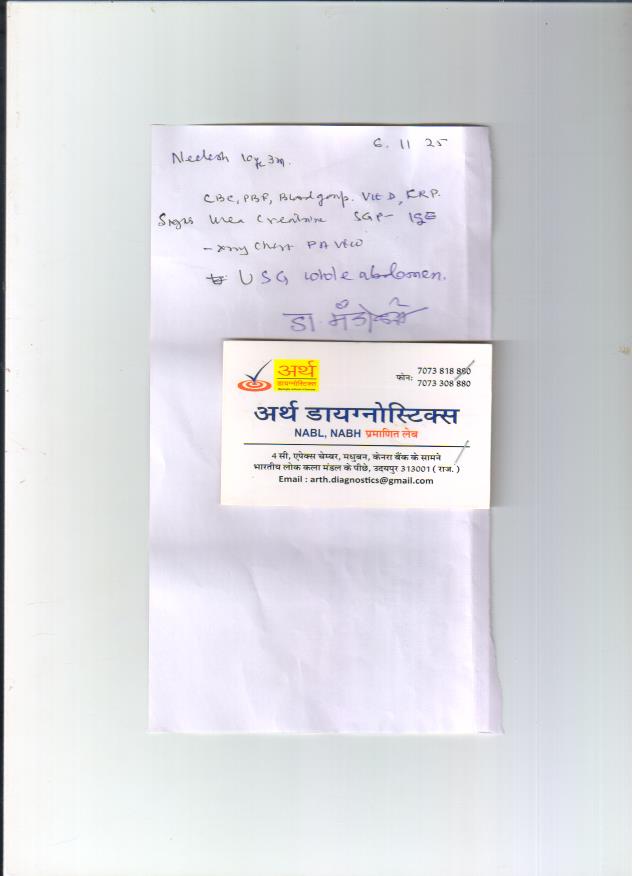 6. 11 25
Neelesh 10y 3m.
CBC, PBF, Blood group. Vit D, CRP.
Urea Creatinine SGP- IgE
- xray Chest PA View
USG whole abdomen.
डा.
अर्थ
डायग्नोस्टिक्स
फोन: 7073 818 880
7073 308 880
अर्थ डायग्नोस्टिक्स
NABL, NABH प्रमाणित लेब
4 सी, एपेक्स चेम्बर, मधुबन, केनरा बैंक के सामने
भारतीय लोक कला मंडल के पीछे, उदयपुर 313001 ( राज. )
Email : arth.diagnostics@gmail.com